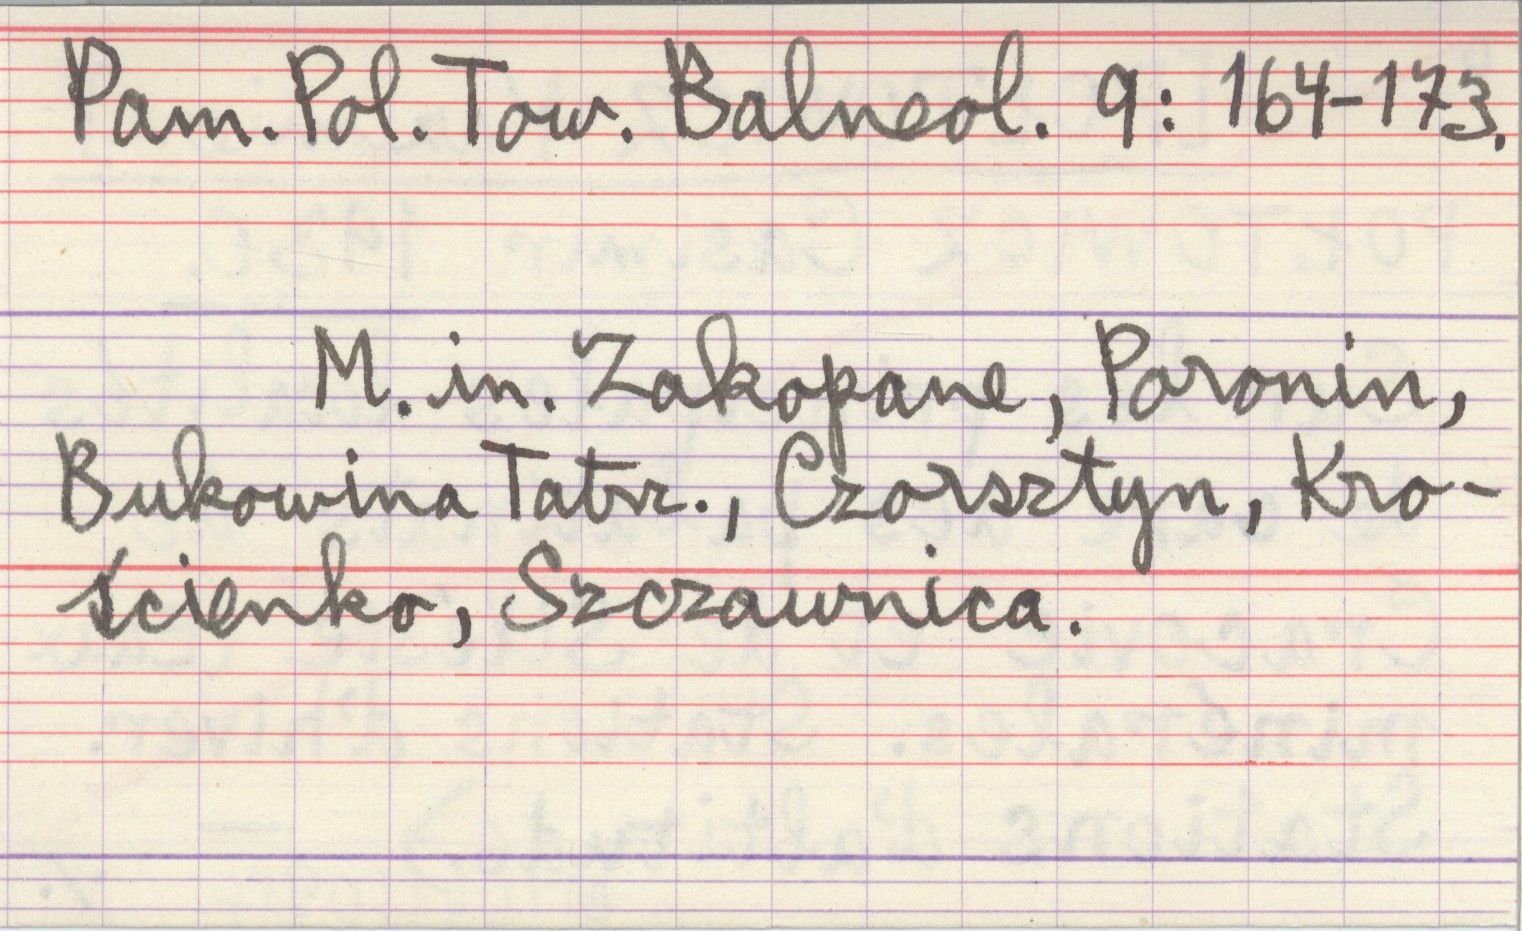 Pam. Pol. Tow. Balneol. 9: 164-173.
M. in. Zakopane, Poronin,
Bukowina Tatrz., Czorsztyn, Kro-
ścienko, Szczawnica.